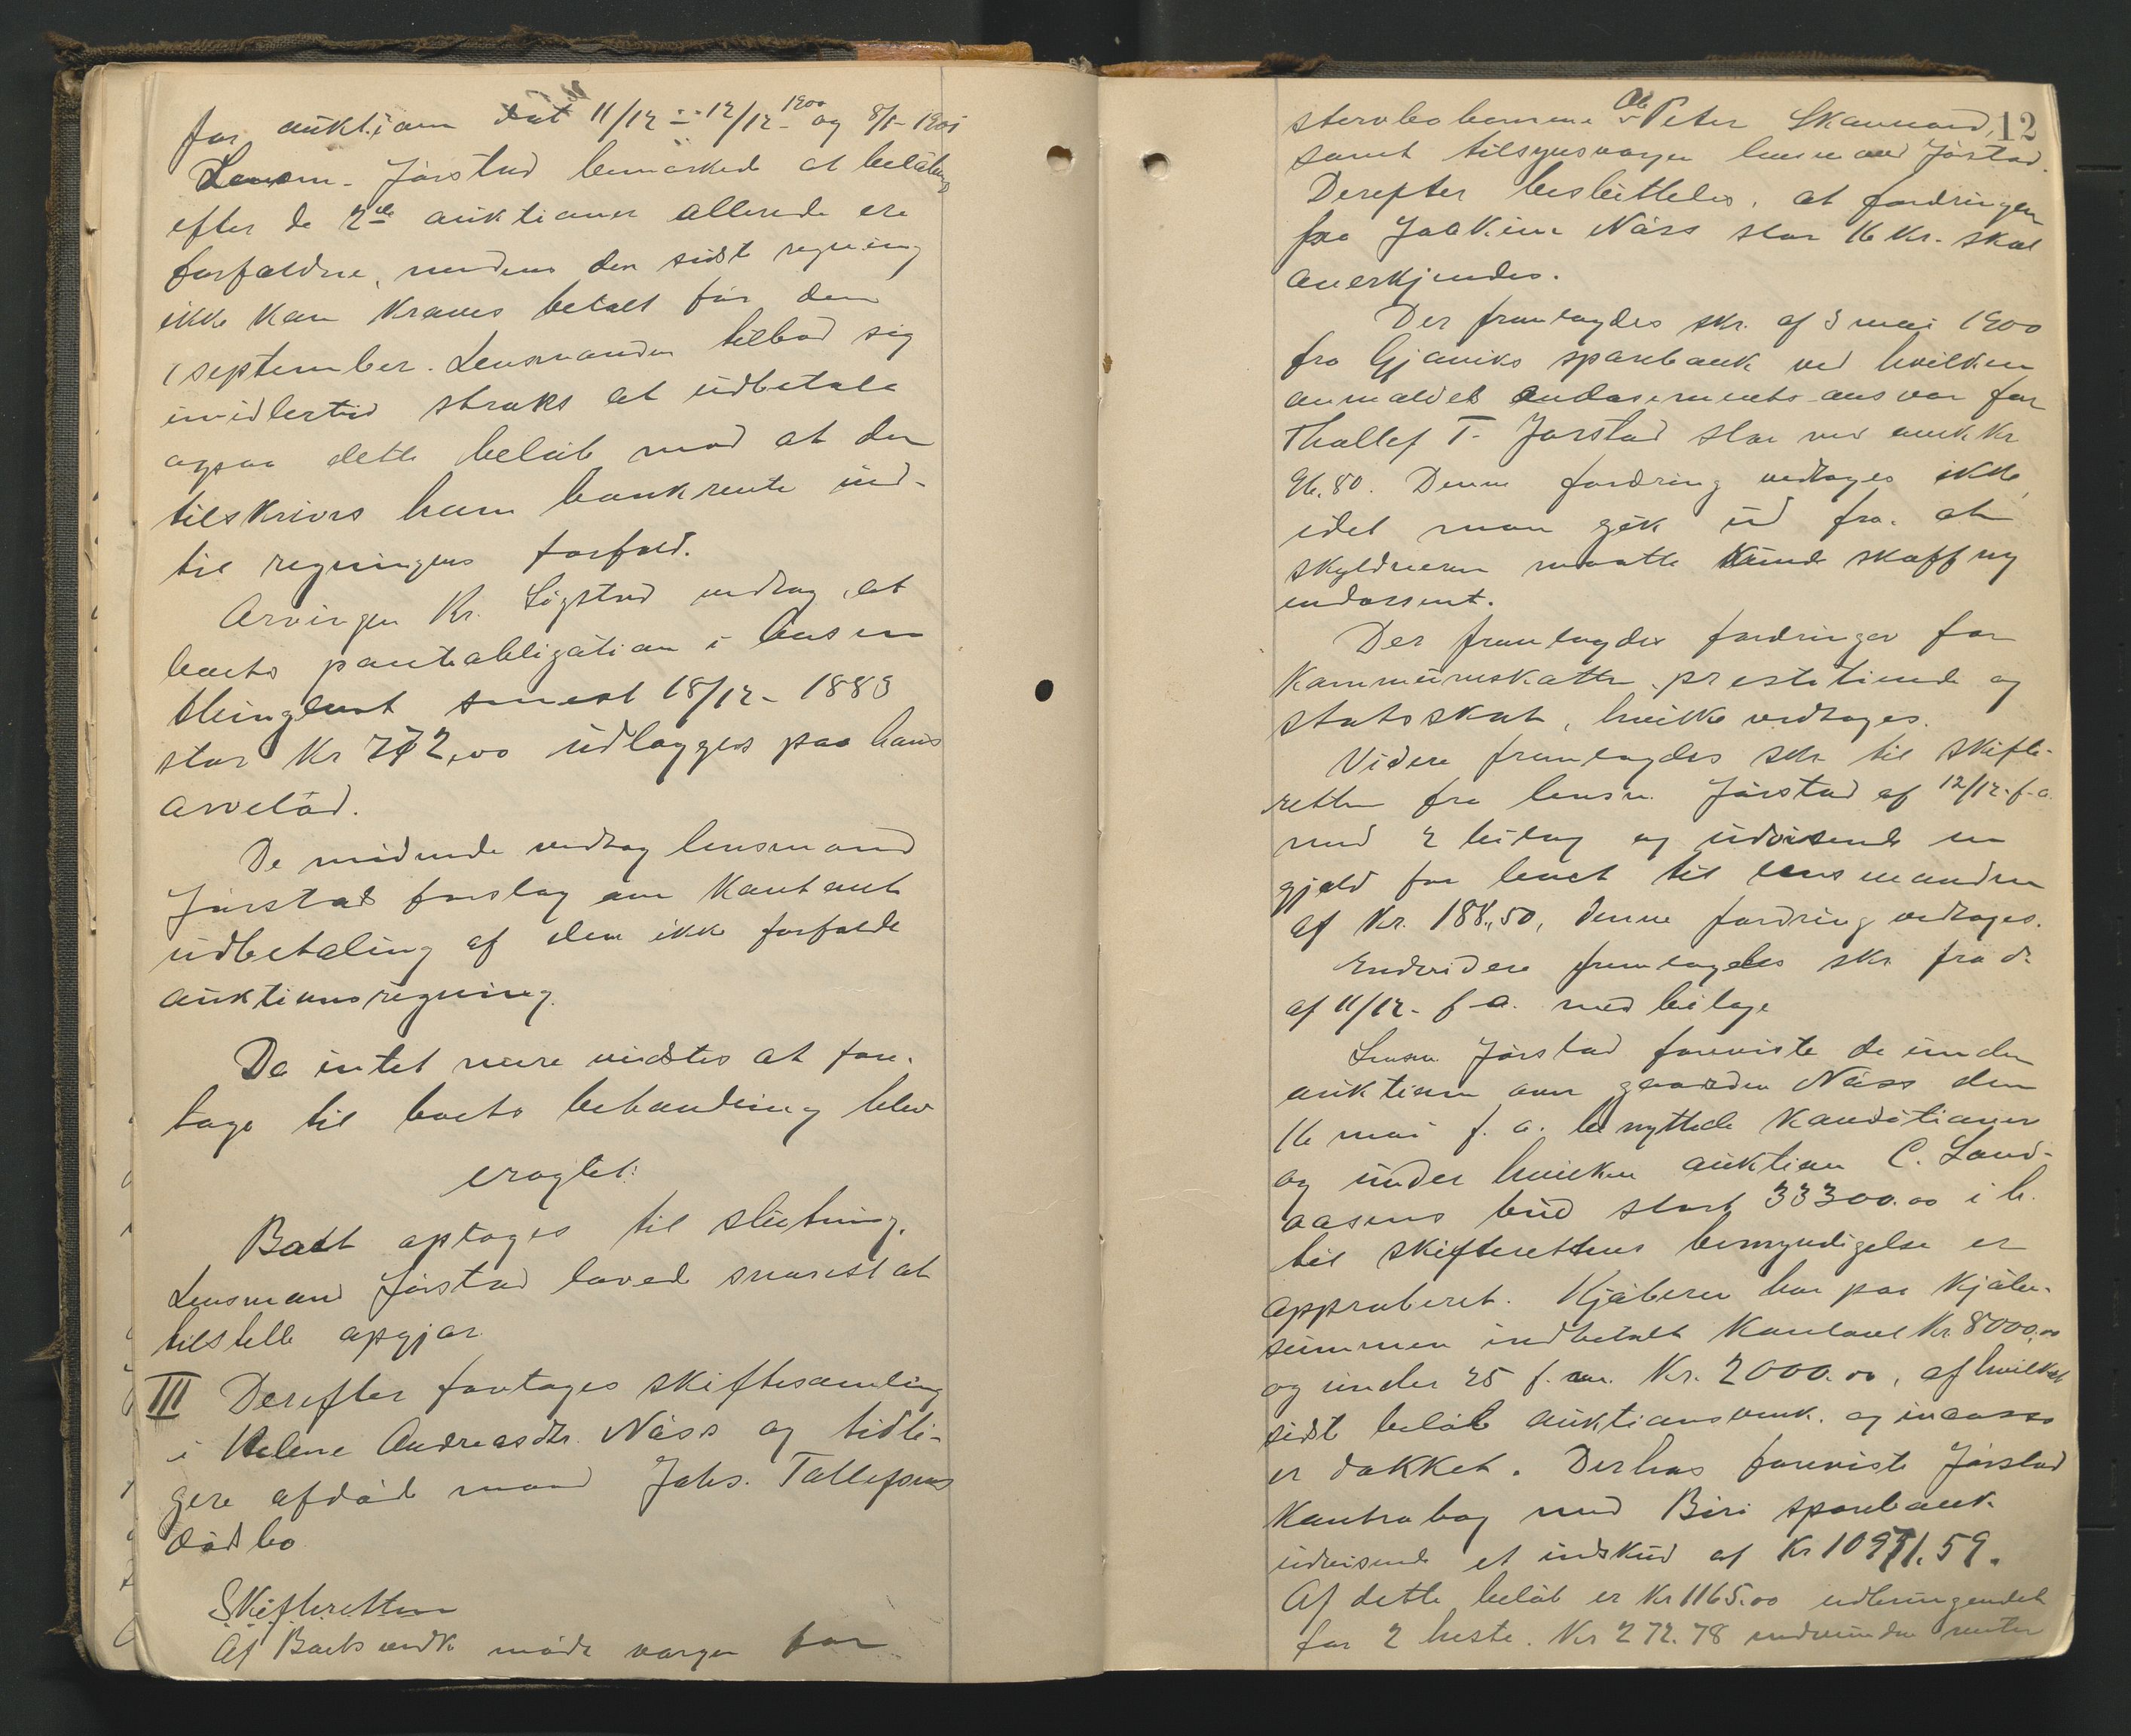 for auktion dat 11/12 - 12/12 - 1900 og 8/1 - 1901
Lensm. Jørstad bemærkede at beløbene
efter de 2de auktioner allerede ere
forfaldne, medens den sidste regning
ikke kan kræves betalt før den
1 september. Lensmanden tilbød sig
imidlertid straks at udbetale
ogsaa dette beløb mod at der
tilskrives ham bankrente ind-
til regningens forfald.
Arvingen Kr. Sigstad vedtog, at
boets panteobligation i
thinglæst senest 18/12 - 1889
stor Kr 772,00 udlægges paa hans
arvelod.
De mødende vedtog lensmand
Jørstads forslag om kontant
udbetaling af den ikke forfaldte
auktionsregning.
Da intet mere vidstes at fore-
tage til boets behandling blev
eragtet:
Boet optages til slutning.
Lensmand Jørstad loved snarest at
tilstelle opgjør.
III Derefter foretages skiftesamling
i Helene Andreasdtr. Næss og tidli-
gere afdøde mand Johs. Tollefsens
dødsbo
Skifteretten
Af Boets vedk. mødte værgen for
12
stervbobørnene Ole Peter Skarmoen,
samt tilsynsværgen lensmand Jørstad.
Derefter besluttedes, at fordringen
fra Joakim Næss stor 16 Kr. skal
anerkjendes.
Der fremlagdes skr. af 3 mai 1900
fra Gjøviks sparebank ved hvilken
anmeldes endosements-ansvar for
Thollef T. Jørstad stor med omk Kr
96.80. Denne fordring vedtoges ikke,
idet man gik ud fra, at
skyldneren maatte kunde skaffe ny
endossent.
Der fremlagdes fordringer for
Kommuneskatten, prestetiende og
statsskat, hvilke vedtoges.
Videre fremlagdes skr til skifte-
retten fra lensm. Jørstad af 12/12 - f. a.
med 2 bilag og udvisende en
gjæld for boet til lensmanden
af Kr. 188,50, denne fordring vedtoges.
Endvidere fremlagdes skr fra d.
af 11/12 - f. a. med bilage
Lensm Jørstad foreviste de under
auktion over gaarden Næss den
16 mai f. a. benyttede konditioner
og under hvilken auktion C. Land-
aasens bud stort 33300.00 i h.
til skifterettens bemyndigelse er
approberet. Kjøberen har paa kjøbe-
summen indbetalt kontant Kr. 8000,00
og under 25 f. m. Kr. 2000.00, af hvilket
sidste beløb auktionsomk. og incasso
er dækket. Derhos foreviste Jørstad
Kontrabog med Biri sparebank
udvisende et indskud af Kr 10971.59.
Af dette beløb er Kr 1165.00 udbringendet
for 2 heste. Kr 272.78 renter